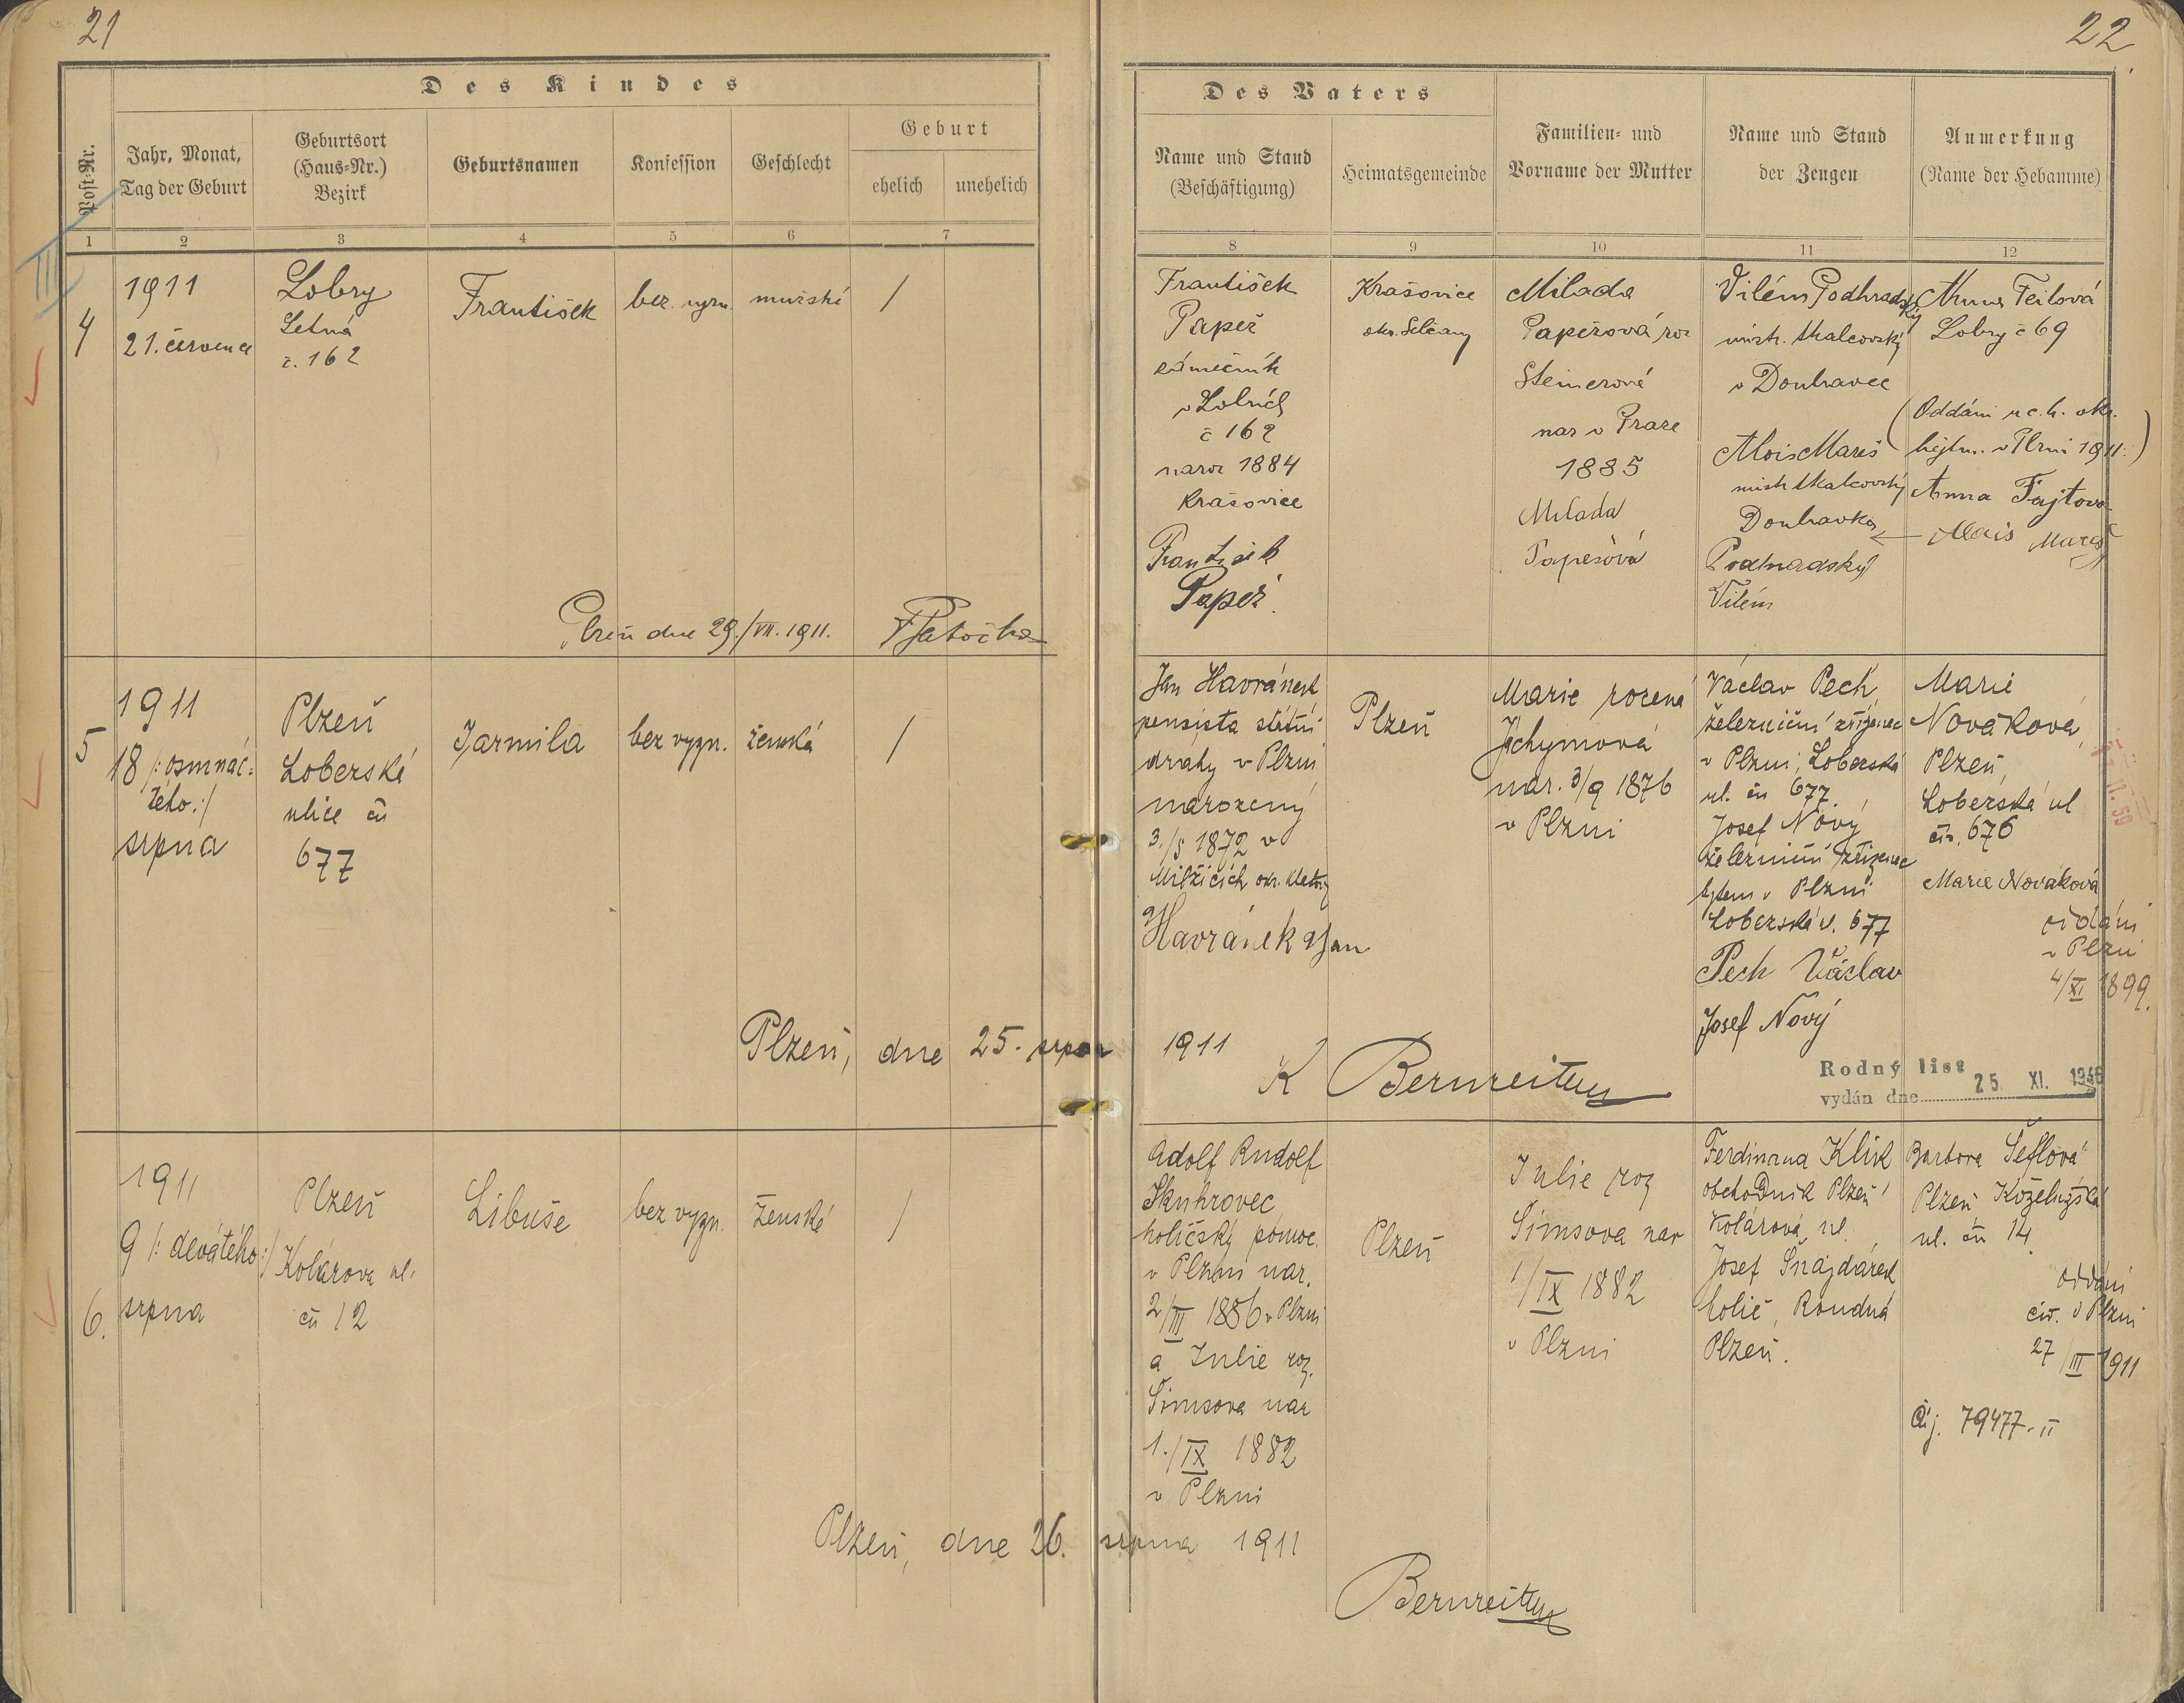 21
Des Kindes
Post-Nr.
Jahr, Monat,
Tag der Geburt
Geburtsort
(Haus-Nr.)
Bezirk
Geburtsnamen
Konfession
Geschlecht
Geburt
ehelich
unehelich
1
2
3
4
5
6
7
III
4
1911
21. července
Lobzy
Letná
č. 162
František
bez vyzn.
mužské
/
Plzeň dne 29./VII. 1911.
5
1911
18 /: osmnác=
tého :/
srpna
Plzeň
Loberská
ulice čís
677
Jarmila
bez vyzn.
ženská
/
Plzeň, dne 25. srpna
6.
1911
9 /: devátého :/
srpna
Plzeň
Kolárova ul.
čís 12
Libuše
bez vyzn.
ženské
/
Plzeň, dne 26.
22
Des Vaters
Name und Stand
(Beschäftigung)
Heimatsgemeinde
Familien- und
Vorname der Mutter
Name und Stand
der Zeugen
Anmerkung
(Name der Hebamme)
8
9
10
11
12
František
Papež
zámečník
v Lobzích
č 162
naroz 1884
Krašovice
František
Papež.
Krašovice
okr. Selčany
Milada
Papežová roz
Steinerová
nar v Praze
1885
Milada
Papežová
Vilém Podhradský
mistr tkalcovský
v Doubravce
Alois Mareš
mistr tkalcovský
Doubravka
Podhradský
Vilém
Anna Feitová
Lobzy č 69
(Oddáni u c.k. okr.
hejtm. v Plzni 1911.)
Anna Fajtova
Alois Mareš
Jan Havránek
pensista státní
dráhy v Plzni
narozený
3./5 1872 v
Milžičích okr.
Havránek Jan
Plzeň
Marie rozená
Jáchymová
nar. 3/9 1876
v Plzni
Václav Pech
železniční zřízenec
v Plzni, Loberská
ul. čís 677.
Josef Nový
železniční zřízenec
bytem v Plzni
Loberská ul. 677
Pech Václav
Josef Nový
Marie
Nováková,
Plzeň,
Loberská ul
čís. 676
Marie Nováková
oddáni
v Plzni
4/XI 1899.
1911
K Bernreiter
Rodný list
vydán dne 25 XI. 1946
Adolf Rudolf
Skuhrovec
holičský pomoc.
v Plzni nar.
2/III 1886 v Plzni
a Julie roz.
Šimsova nar
1./IX 1882
v Plzni
Plzeň
Julie roz
Šimsova nar
1/IX 1882
v Plzni
Ferdinand Klik
obchodník Plzeň
Kolárová ul.
Josef Šnajdárek
holič, Roudná
Plzeň.
Barbora Šeflová
Plzeň, Koželužská
ul. čís 14.
oddáni
civ. v Plzni
27/III 1911
čj. 79477-II
srpna 1911
Bernreiter